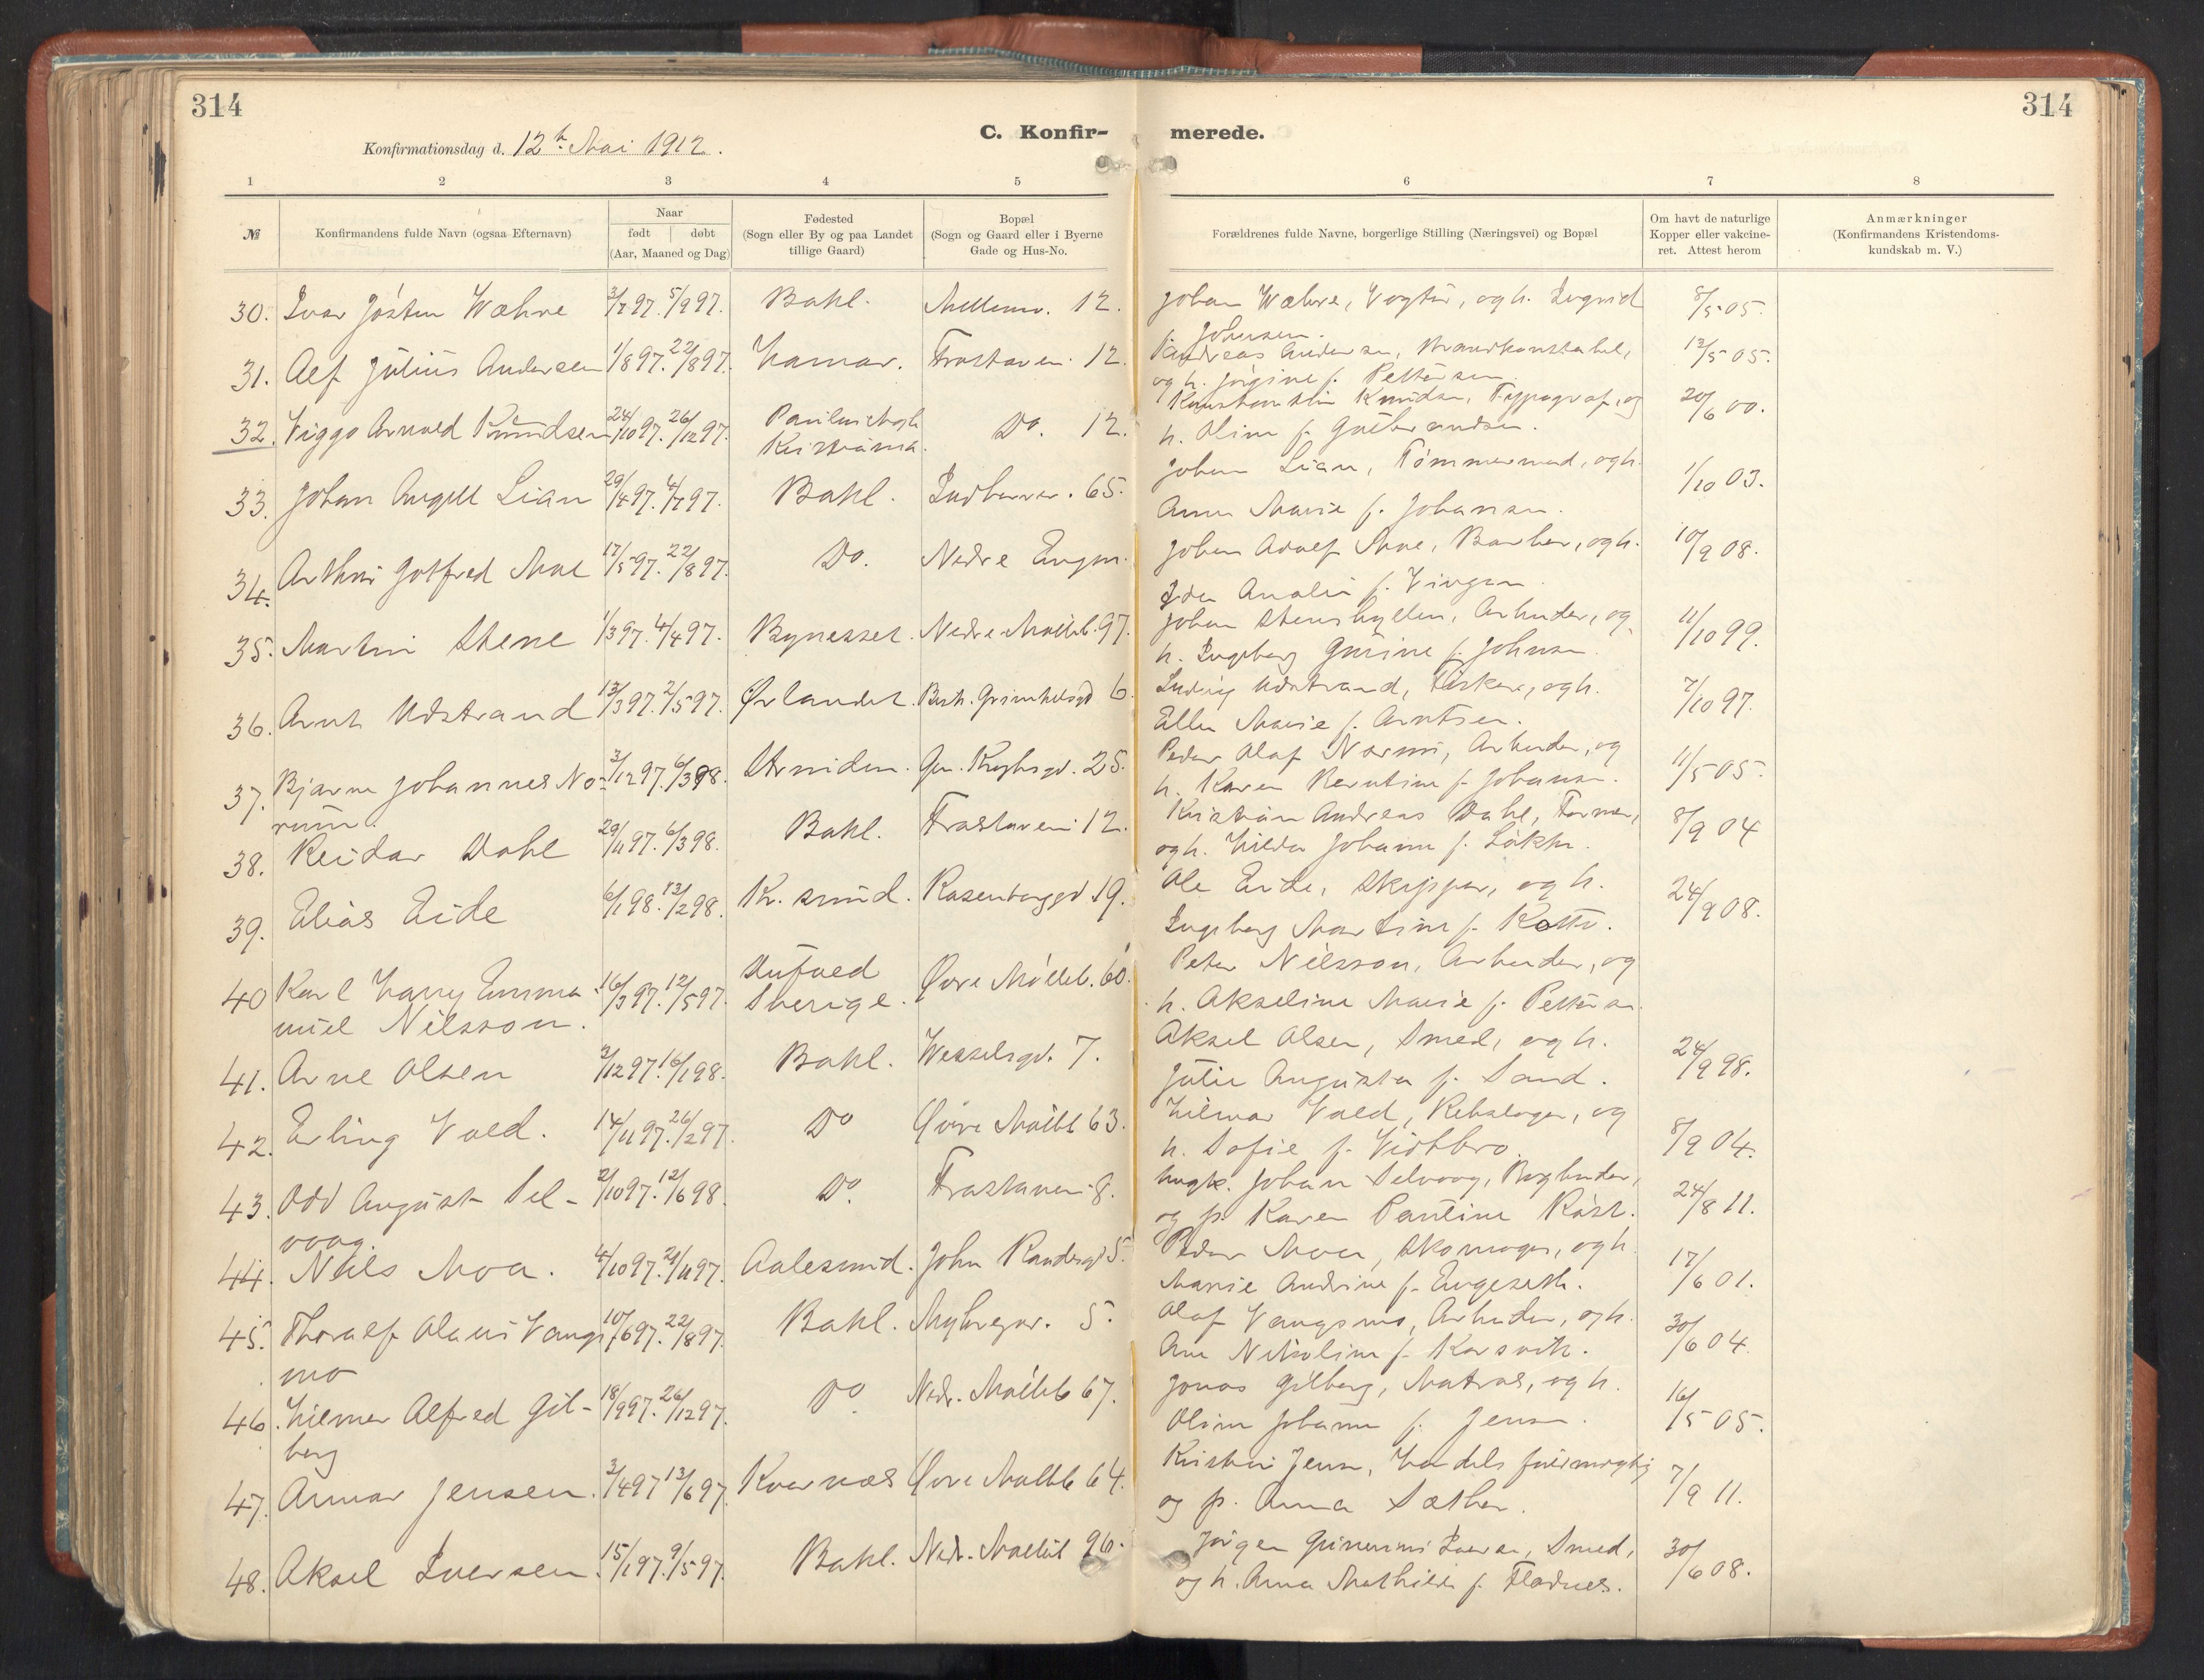 314
314
C. Konfir-
merede.
Konfirmationsdag d. 12te Mai 1912.
1 2 3 4 5 6 7 8
№
Konfirmandens fulde Navn (ogsaa Efternavn)
Naar
født døbt
(Aar, Maaned og Dag)
Fødested
(Sogn eller By og paa Landet
tillige Gaard)
Bopæl
(Sogn og Gaard eller i Byerne
Gade og Hus-No.
Forældrenes fulde Navne, borgerlige Stilling (Næringsvei) og Bopæl
Om havt de naturlige
Kopper eller vakcine-
ret. Attest herom
Anmærkninger
(Konfirmandens Kristendoms-
kundskab m. V.)
30. Ivar Jósten Wæhre 3/7 97. 5/9 97. Bakl. Mellemv. 12. Johan Wæhre, Vogter, og h. Ingrid 8/5 05.
Johnsen.
31. Alf Julius Andersen 1/8 97. 22/8 97. Hamar. Frostaven. 12. Andreas Andersen, 12/5 05.
og h. Jørgine f. Pettersen.
32. Viggo Arnold Knudsen 24/10 97. 26/12 97. Do. 12. Konstantin Knudsen, Typograf, og 20/6 00.
Kristiania.
h. Oline f. Gulbrandsen.
33. Johan Angell Lian 29/4 97. 4/7 97. Bakl. Indherrev. 65. Johan Lian, Tømmermand, og h. 1/10 03.
Anna Marie f. Johansen.
34. Arthur Gotfred Moe 17/5 97. 22/8 97. Do. Nedre Johan Adolf Moe, Barber, og h. 10/9 08.
Ida Amalie f. Vingen.
35. Martin Stene 1/3 97. 4/4 97. Bynesset. Nedre Mølleb. 97. Johan Arbeider, og 11/10 99.
h. Ingeborg Gurine f. Johnsen.
36. Arnt Udstrand 13/3 97. 2/5 97. Ørlandet. 6. Ludvig Udstrand, Fisker, og h. 7/10 97.
Ellen Marie f. Arntsen.
37. Bjarne Johannes No- 3/12 97. 6/3 98. Strinden. Gen. Kroghsgd. 25. Peder Olaf Arbeider, og 11/5 05.
rum.
h. Karen Berntine f. Johansen.
38. Reidar Dahl 29/11 97. 6/3 98. Bakl. Frostaven. 12. Kristian Andreas Dahl, Former, 8/9 04
og h. Hilda Johanne f.
39. Elias Eide 6/1 98. 13/2 98. Kr. sund. Rosenborggd 19. Ole Eide, Skipper, og h. 24/9 08.
Ingeborg Martine f.
40 Karl Harry Emma- 16/3 97. 12/5 97. Øvre Mølleb. 60. Peter Nilsson, Arbeider, og
nuel Nilsson. Sverige.
h. Akseline Marie f. Pettersen.
41. Arne Olsen 3/12 97. 16/1 98. Bakl. Wesselsgd. 7. Aksel Olsen, Smed, og h. 24/9 98.
Julie Augusta f. Sand.
42. Erling Vold. 14/11 97. 26/2 97. Do Øvre Møllb 63. Hilmar Vold, Rebslager, og 8/9 04.
h. Sofie f. Vidtbro.
43. Odd August Sel- 2/10 97. 12/6 98. Do. Frostaven. 8. Ungk. Johan Selvoog, Bogbinder, 24/8 11.
voog.
og p. Karen Pauline
44. Nils Moa. 4/10 97. 21/11 97. Aalesund. John 5. Peder Moa, Skomager, og h. 17/6 01.
Marie Andrine f. Engeseth.
45. Thoralf Olaus Vangs 10/6 97. 22/8 97. Bakl. Nyhregnr. 5. Olaf Vangsmo, Arbeider, og h. 30/6 04.
mo
Ane Nikoline f. Korsvik.
46. Hilmer Alfred Gil- 18/9 97. 26/12 97. Do. Nedr. Mølleb 67. Jonas Gilberg, Matros, og h. 16/5 05.
berg
Oline Johanne f. Jensen.
47. Annar Jensen. 3/4 97 13/6 97. Kvernæs Øvre Møllb 64. Kristian Jensen, 7/9 11.
og p. Anna Sæther.
48. Aksel Iversen. 15/1 97. 9/5 97. Bakl. Nedr. Mølleb 96. Jørgen Iversen, Smed, 30/6 08.
og h. Anna Mathilde f. Fladnes.